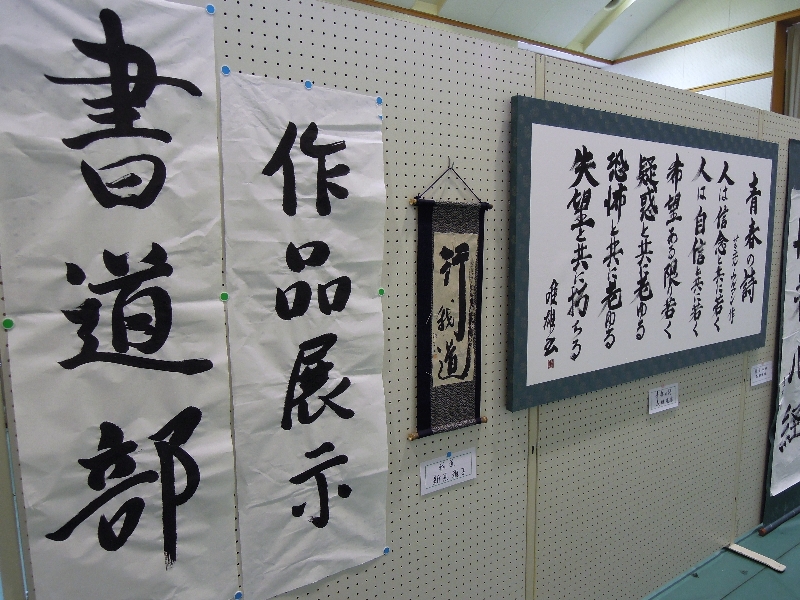 書道部
作品展示
行我道
青春の詩
人は信念と共に若く
人は自信と共に若く
希望ある限若く
疑惑と共に老ゆる
恐怖と共に老ゆる
失望と共に朽ちる
心経